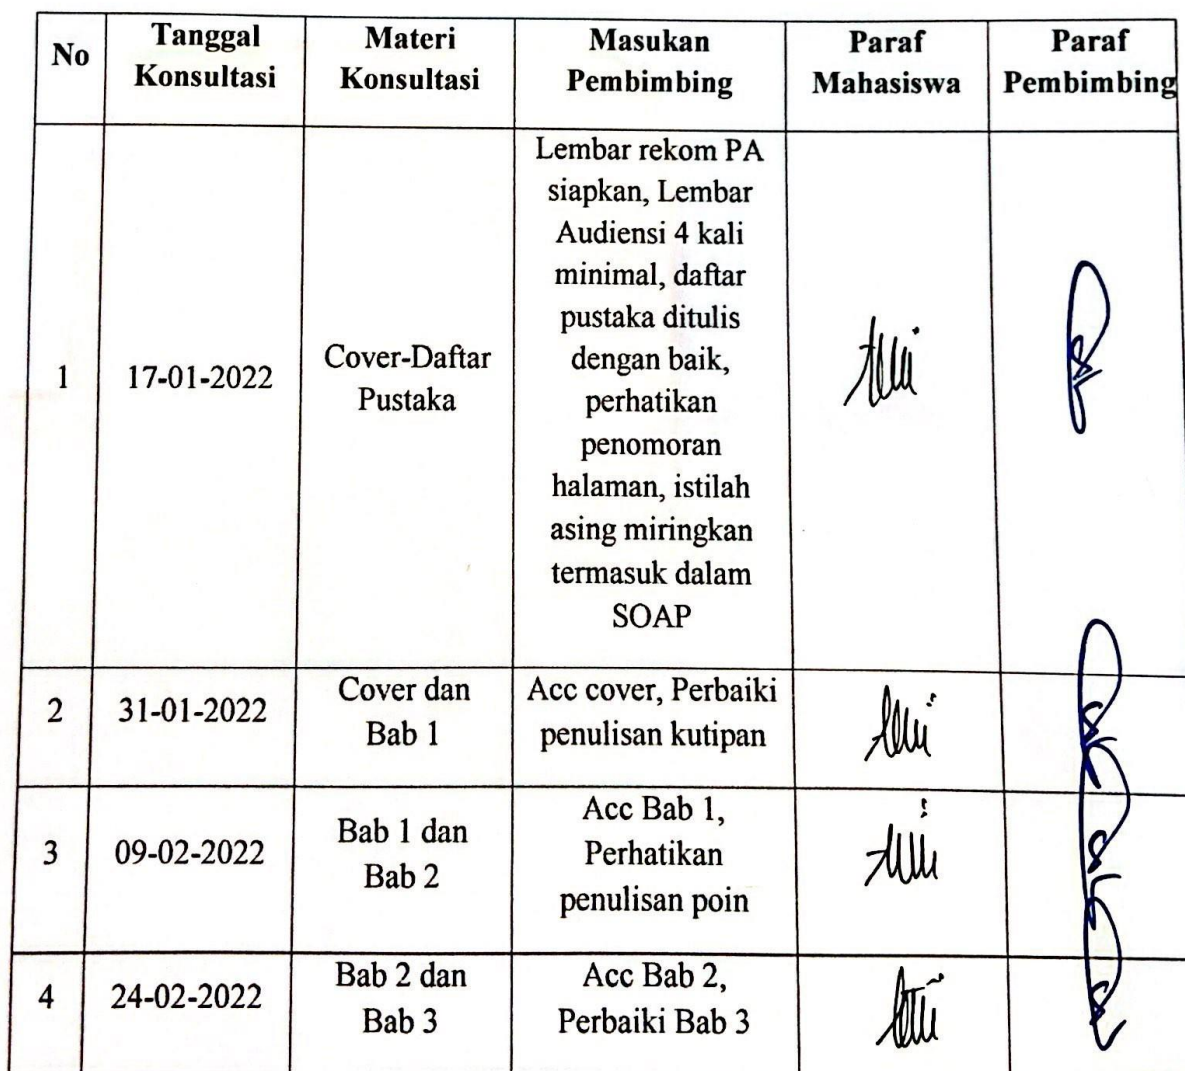 No
Tanggal
Konsultasi
Materi
Konsultasi
Masukan
Pembimbing
Paraf
Mahasiswa
Paraf
Pembimbing
1
17-01-2022
Cover-Daftar
Pustaka
Lembar rekom PA
siapkan, Lembar
Audiensi 4 kali
minimal, daftar
pustaka ditulis
dengan baik,
perhatikan
penomoran
halaman, istilah
asing miringkan
termasuk dalam
SOAP
2
31-01-2022
Cover dan
Bab 1
Acc cover, Perbaiki
penulisan kutipan
3
09-02-2022
Bab 1 dan
Bab 2
Acc Bab 1,
Perhatikan
penulisan poin
4
24-02-2022
Bab 2 dan
Bab 3
Acc Bab 2,
Perbaiki Bab 3